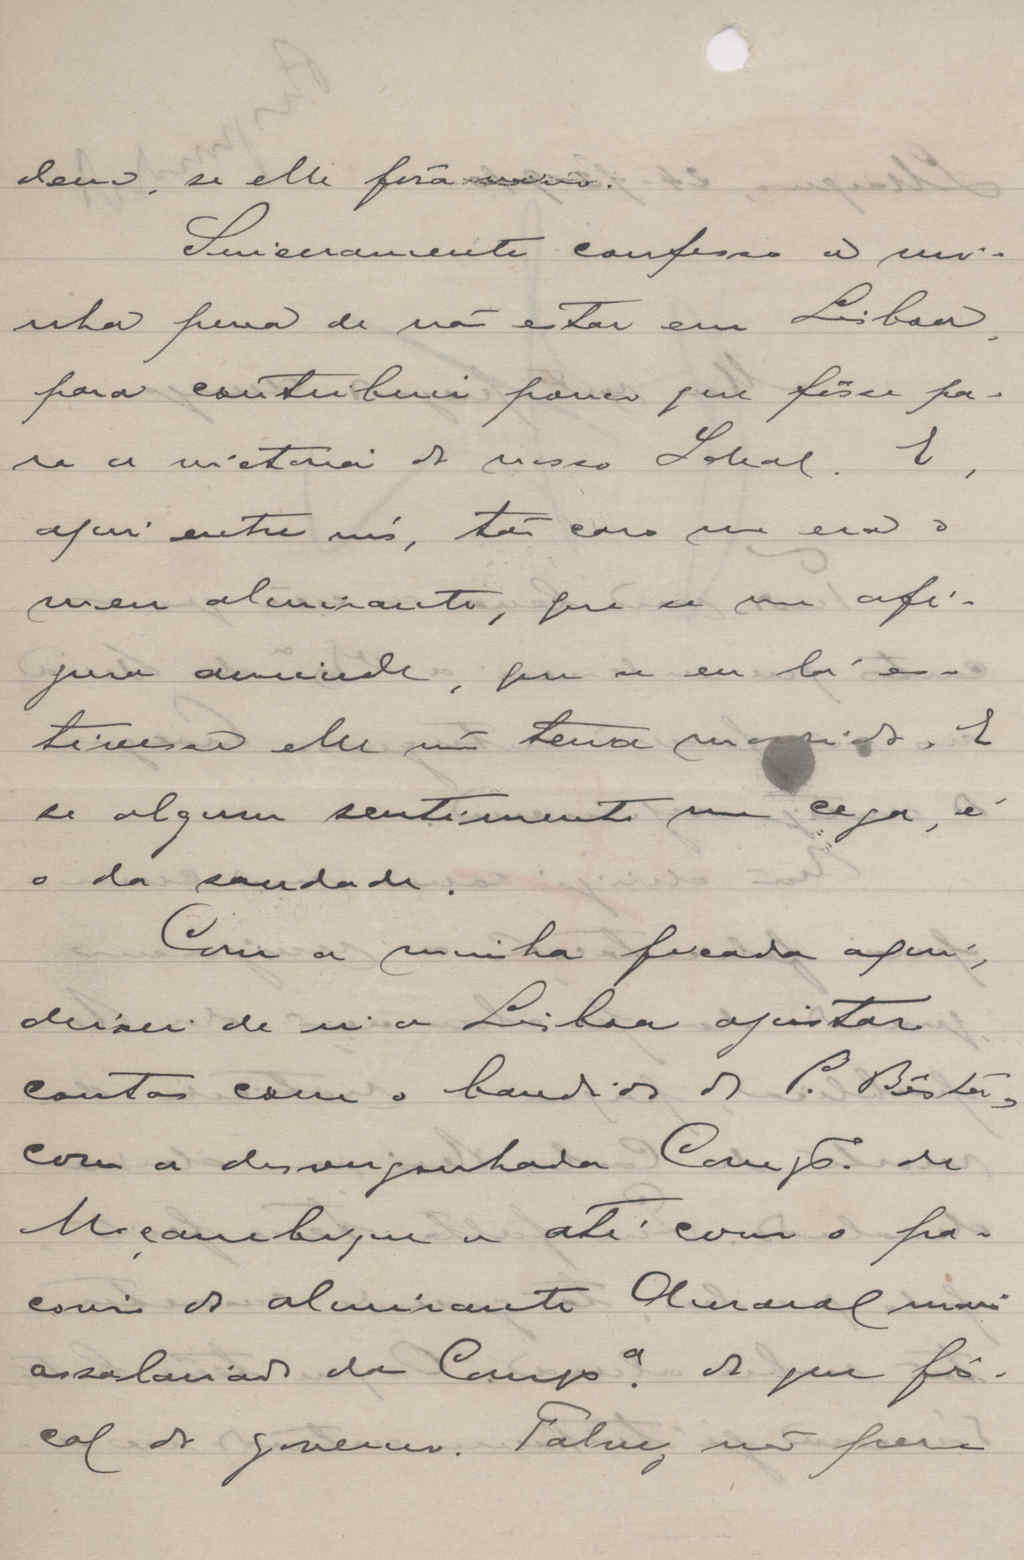 deu, se elle fôra vivo.
Sinceramente confesso a mi-
nha pena de não estar em Lisboa,
para contribuir pouco que fôsse pa-
ra a victoria do nosso Ideal. E,
aqui entre nós, tão caro me era o
meu almirante, que se me afi-
gura amiude, que se eu lá es-
tivesse elle não teria morrido. E
se algum sentimento me cega, é
o da saudade.
Com a minha ficada aqui,
deixei de ir a Lisboa ajustar
contas com o bandido do P. Bastos,
com a desvergonhada Comp.ª de
Moçambique e até com o pa-
covio do almirante Amaral mais
assalariado da Comp.ª do que fis-
cal do governo. Talvez não fira